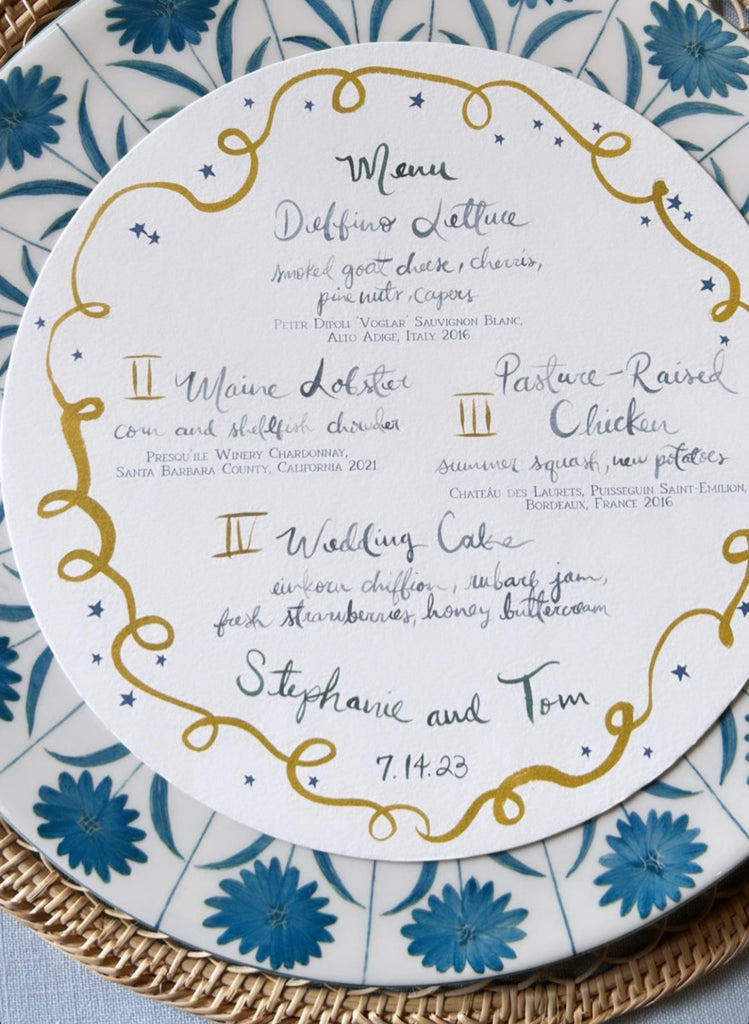 Menu
Delfino Lettuce
smoked goat cheese, cherris,
pine nuts, capers
Peter Dipoli 'Voglar' Sauvignon Blanc,
Alto Adige, Italy 2016
II Maine Lobster
corn and shellfish chowder
Presqu'ile Winery Chardonnay,
Santa Barbara County, California 2021
III Pasture-Raised
Chicken
summer squash, new potatoes
Chateâu des Laurets, Puisseguin Saint-Emilion,
Bordeaux, France 2016
IV Wedding Cake
einkorn chiffion, rubarb jam,
fresh strawberries, honey buttercream
Stephanie and Tom
7.14.23